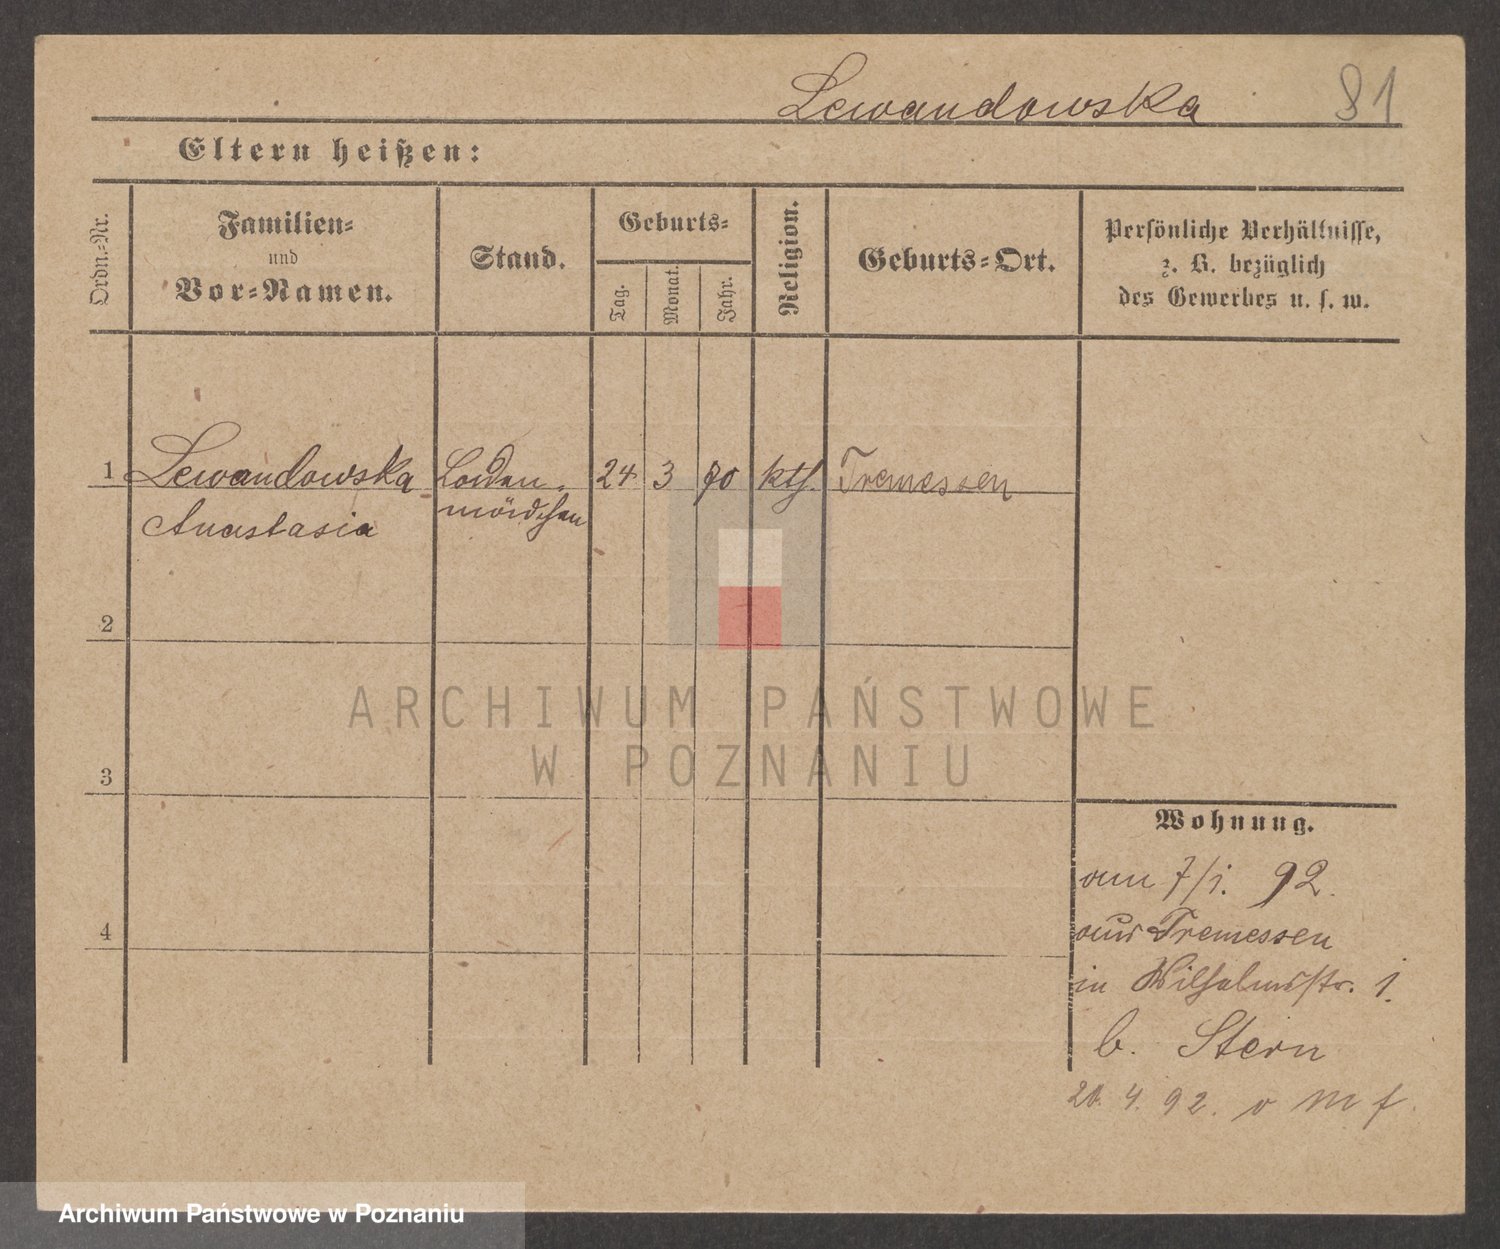 Lewandowska 81
Eltern heißen:
Ordn.-Nr.
Familien-
und
Vor-Namen.
Stand.
Geburts-
Tag.
Monat.
Jahr.
Religion.
Geburts-Ort.
Persönliche Verhältnisse,
z. B. bezüglich
des Gewerbes u. s. w.
1 Lewandowska Laden- 24 3 70 kth. Tremessen
Anastasia mädchen
2
3
4
Wohnung.
am 7/1. 92.
aus Tremessen
in Wilhelmstr. 1.
b. Stern
4. 92.
ARCHIWUM PAŃSTWOWE
W POZNANIU
Archiwum Państwowe w Poznaniu